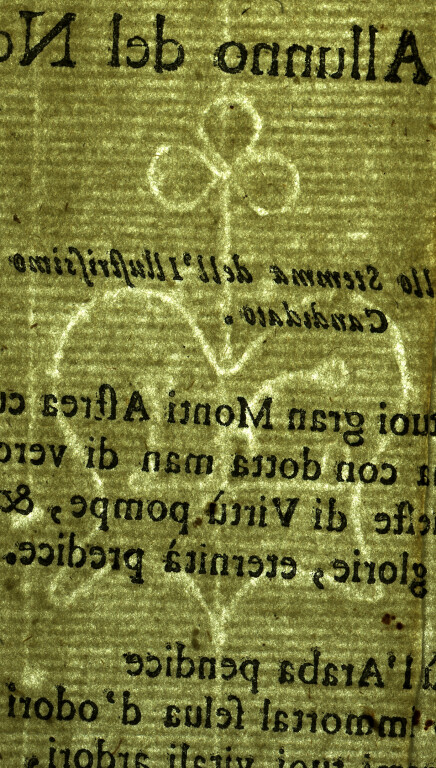 Allunno del No
llo Stemma dell'Illuſtriſsimo
Candidato.
tuoi gran Monti Aſtrea
con dotta man di verd
eſte di Virtù pompe, &
glorie, eternità predice.
l'Araba pendice
mmortal ſelua d'odori
tuoi virali ardori,